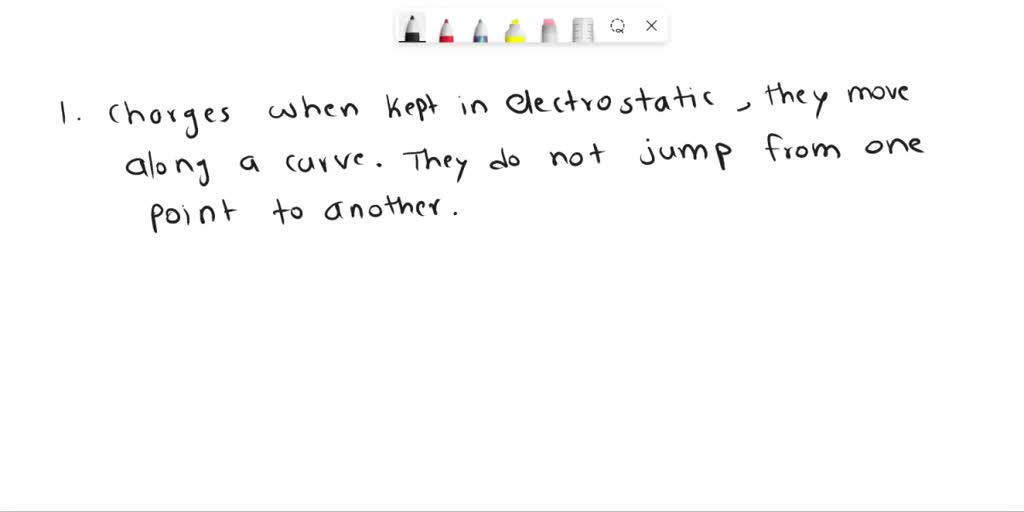 1. Charges when kept in electrostatic, they move
along a curve. They do not jump from one
point to another.